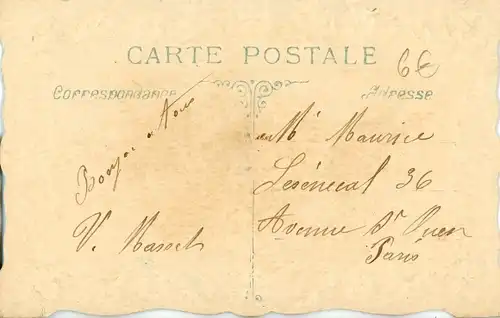 CARTE POSTALE
6€
Correspondance
Adresse
Bonjour à tous
V. Massel
Mr Maurice
Lesénécal 36
Avenue St Ouen
Paris